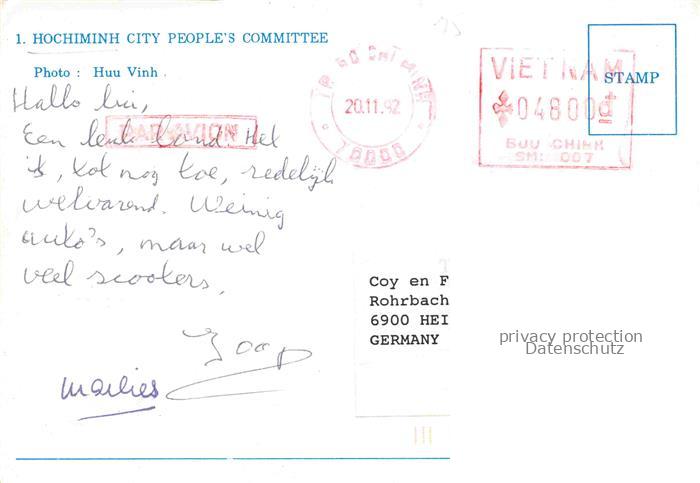 1. HOCHIMINH CITY PEOPLE'S COMMITTEE
Photo : Huu Vinh .
Hallo lui,
Een leuk land. Het
is, tot nog toe, redelijk
welvarend. Weinig
auto's, maar wel
veel scooters.
Joop
Marlies
PAR AVION
TP HO CHI MINH
20.11.92
70000
VIETNAM
04800đ
BUU CHINH
STAMP
Coy en F
Rohrbach
6900 HEI
GERMANY
privacy protection
Datenschutz